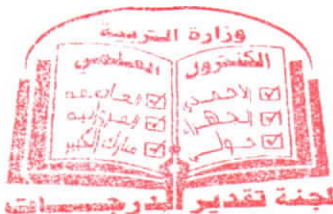 وزارة التربية
الكنترول التعليمي
الأحمدي
الجهراء
حولي
العاصمة
الفروانية
مبارك الكبير
لجنة تقدير الدرجات